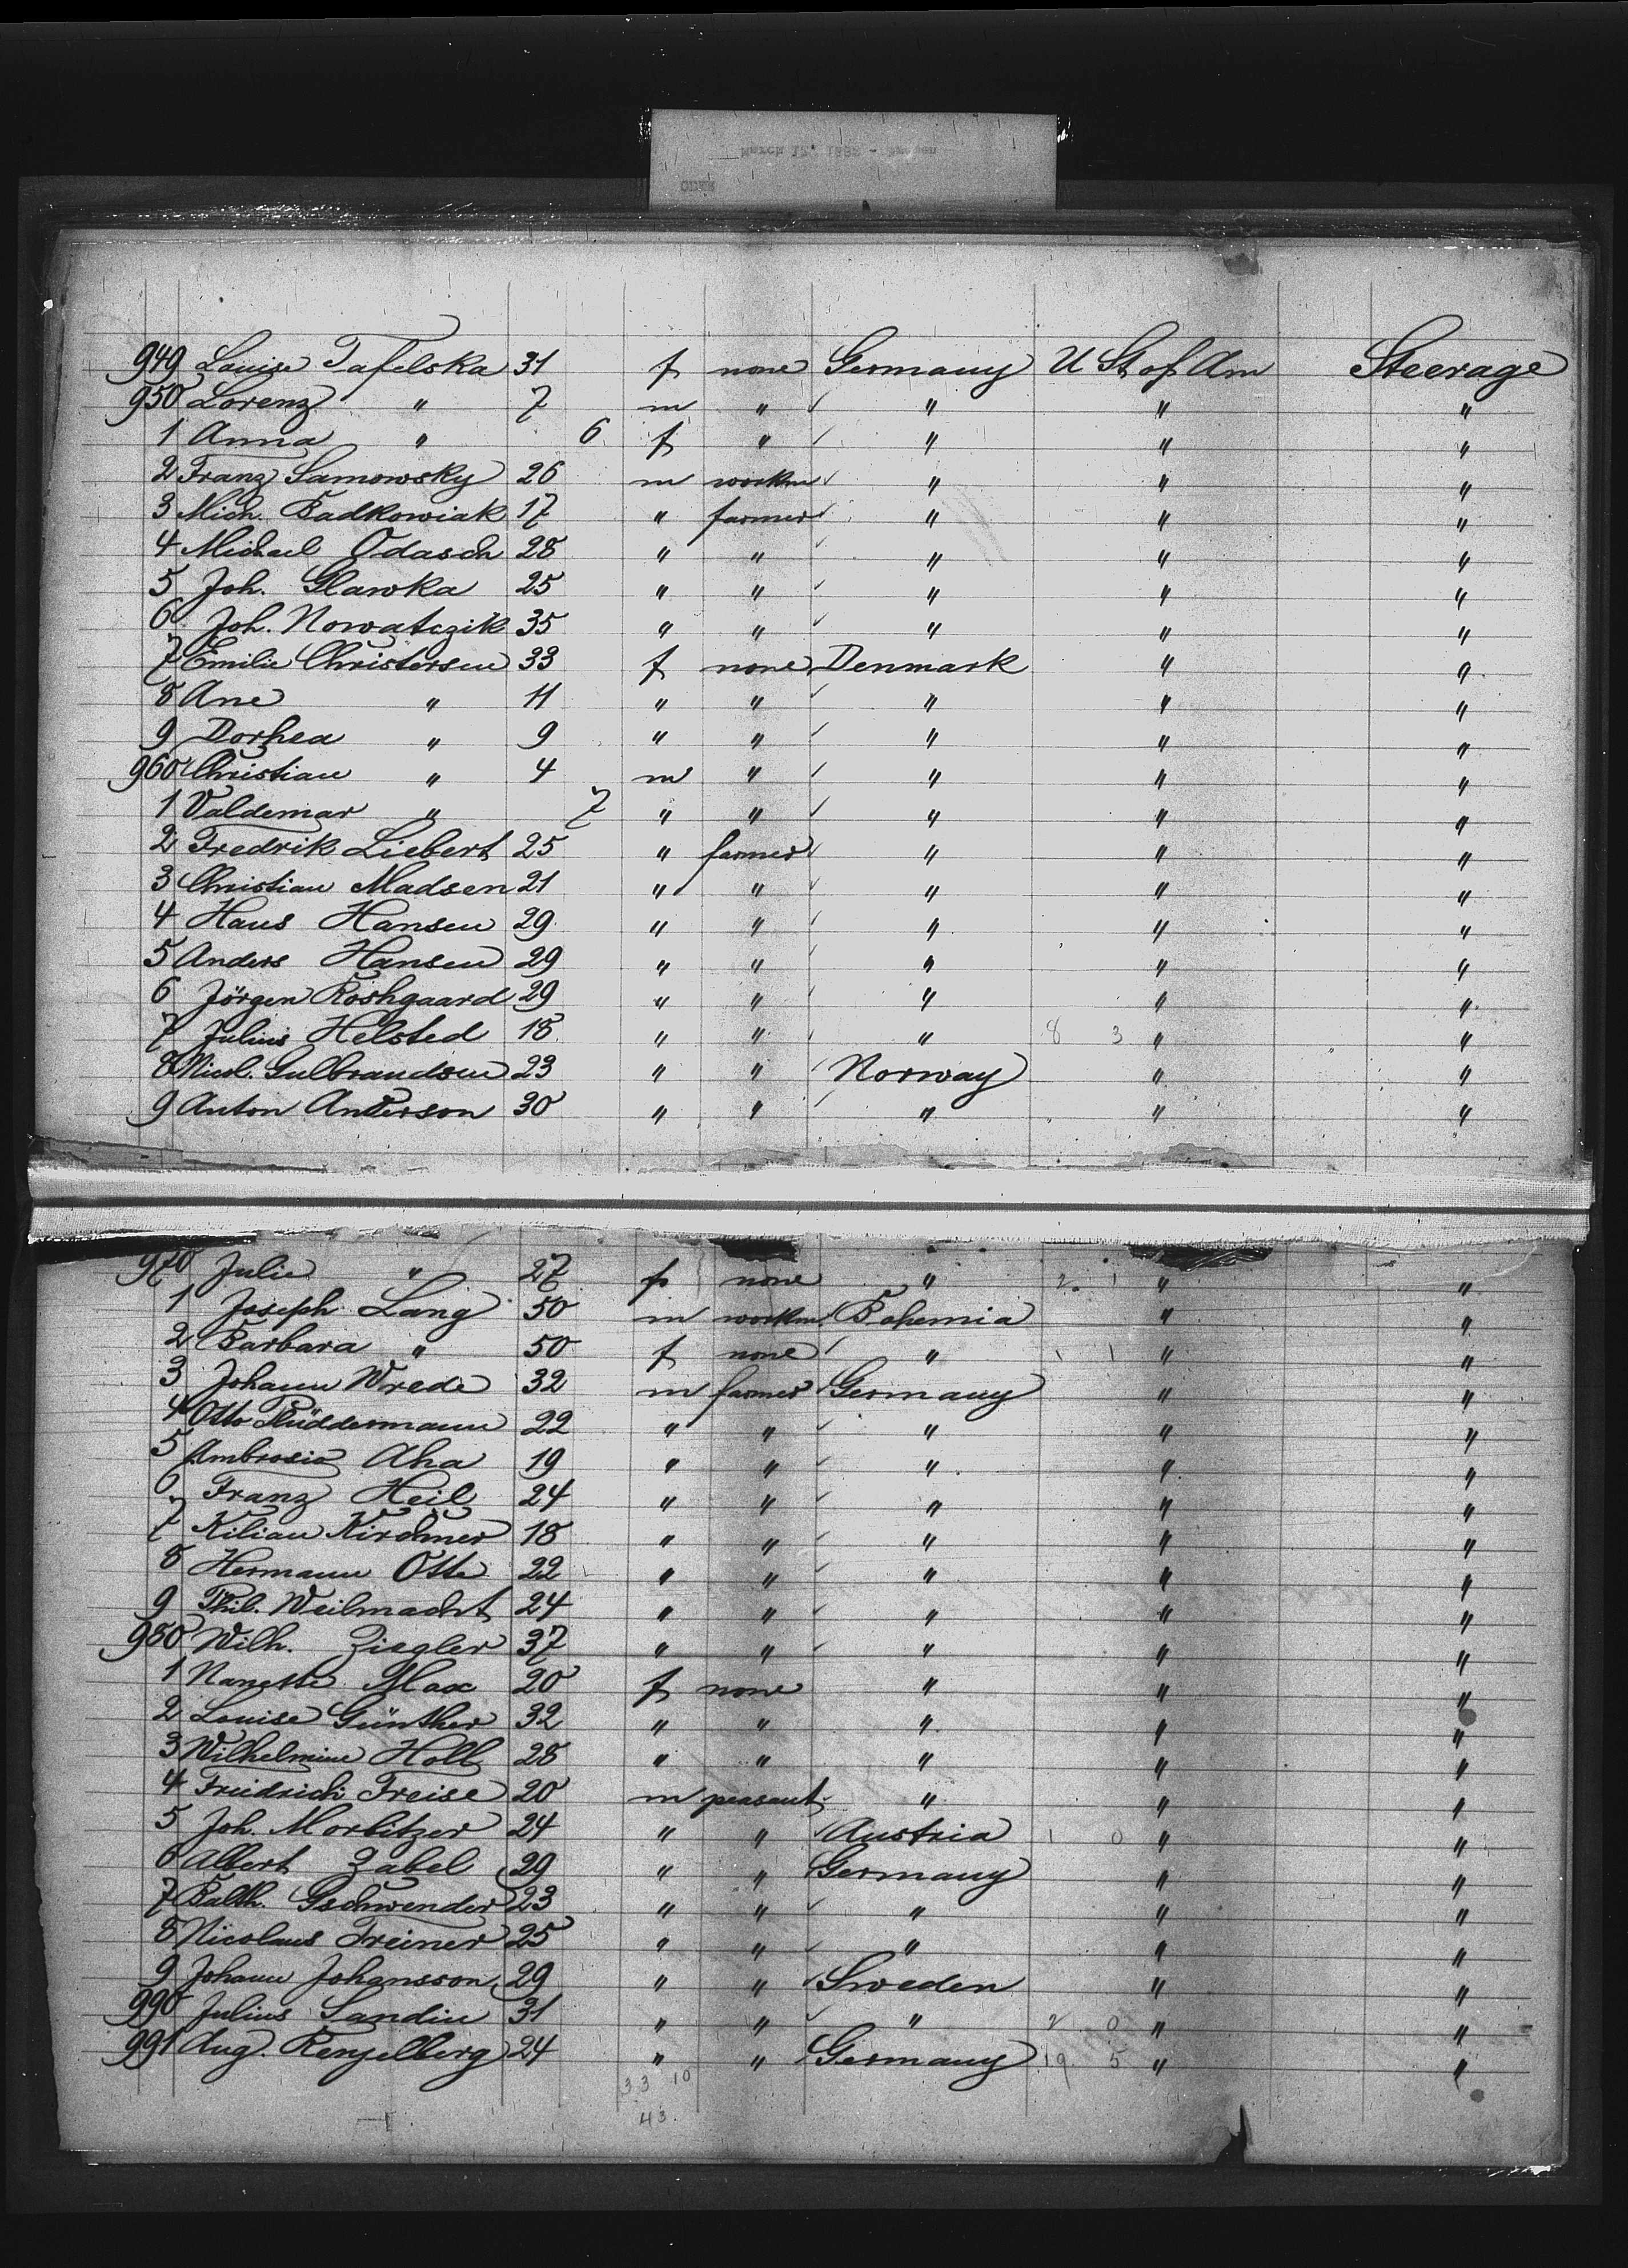 949 Louise Tafelska 31 f none Germany U St of Am Steerage
950 Lorenz " 7 m " " " "
1 Anna " 6 f " " " "
2 Franz Samowsky 26 m workm " " "
3 Mich. Badkowiak 17 " farmer " " "
4 Michael Odasch 28 " " " " "
5 Joh. Glawka 25 " " " " "
6 Joh. Nowatczik 35 " " " " "
7 Emilie Christersen 33 f none Denmark " "
8 Ane " 11 " " " " "
9 Dorhea " 9 " " " " "
960 Christian " 4 m " " " "
1 Valdemar " 7 " " " " "
2 Fredrik Liebert 25 " farmer " " "
3 Christian Madsen 21 " " " " "
4 Hans Hansen 29 " " " " "
5 Anders Hansen 29 " " " " "
6 Jörgen Roshgaard 29 " " " " "
7 Julius Helsted 18 " " " 8 3 " "
8 Nicol. Gulbrandsen 23 " " Norway " "
9 Anton Anderson 30 " " " " "
970 Julie " 27 f none " 2 1 " "
1 Joseph Lang 50 m workm Bohemia " "
2 Barbara " 50 f none " 1 1 " "
3 Johann Wrede 32 m farmer Germany " "
4 Otto Plüddermann 22 " " " " "
5 Ambrosio Aha 19 " " " " "
6 Franz Heil 24 " " " " "
7 Kilian Kirchner 18 " " " " "
8 Hermann Otte 22 " " " " "
9 Phil. Weilmacht 24 " " " " "
980 Wilh. Ziegler 37 " " " " "
1 Nanette Max 20 f none " " "
2 Louise Günther 32 " " " " "
3 Wilhelmine Holl 28 " " " " "
4 Friedrich Freise 20 m peasant " " "
5 Joh. Morbitzer 24 " " Austria 1 0 " "
6 Albert Zabel 29 " " Germany " "
7 Balth. Gschwender 23 " " " " "
8 Nicolaus Freiner 25 " " " " "
9 Johann Johansson 29 " " Sweden " "
990 Julius Sandin 31 " " " 2 0 " "
991 Aug. Renzelberg 24 " " Germany 19 5 " "
33 10
43